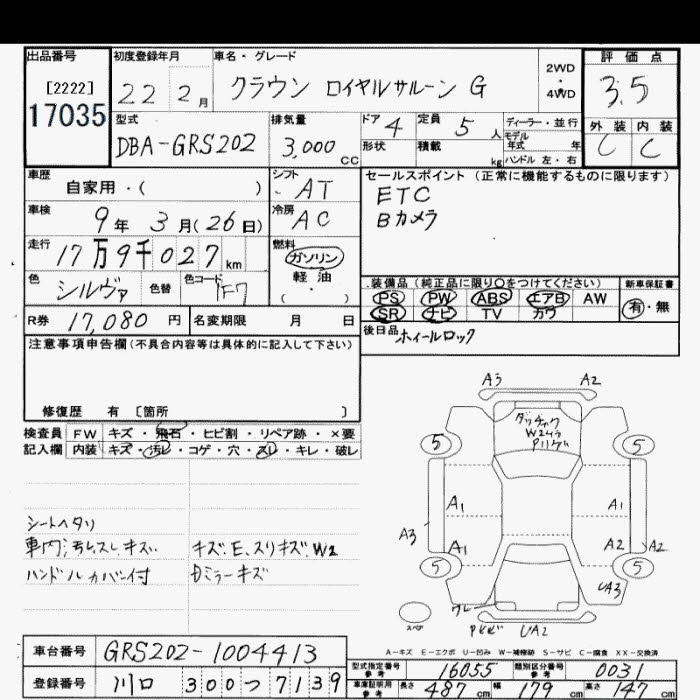 出品番号
[2222]
17035
初度登録年月
22 2月
車名・グレード
クラウン ロイヤルサルーン G
2WD
・
4WD
評価点
3.5
外装 内装
C C
型式
DBA-GRS202
排気量
3,000 CC
ドア 4
形状
定員 5 人
積載 kg
ディーラー・並行
モデル
年式 年
ハンドル 左・右
車歴
自家用・( )
シフト
AT
車検
9年 3月(26日)
冷房
AC
走行
17万9千027km
燃料
ガソリン
軽油
( )
色 シルヴァ
色替
色コード 1F7
セールスポイント (正常に機能するものに限ります)
ETC
Bカメラ
装備品 (純正品に限り○をつけてください)
新車保証書
PS PW ABS エアB AW
SR ナビ TV カワ
有・無
R券 17,080 円
名変期限 月 日
後日品 ホイールロック
注意事項申告欄(不具合内容等は具体的に記入して下さい)
修復歴 有 〔箇所 〕
検査員 FW キズ・飛石・ヒビ割・リペア跡・×要
記入欄 内装 キズ・汚レ・コゲ・穴・スレ・キレ・破レ
シートヘタリ
車内汚レ、スレ、キズ
ハンドルカバー付
キズ、E、スリキズ、W2
ミラーキズ
A3 A2
W2
5 5
A1 A1
A3 A1 A2 A2
5 5
UA3
スペア
UA2
A-キズ E-エクボ U-凹み W-補修跡 S-サビ C-腐食 XX-交換済
車台番号 GRS202-1004413
登録番号 川口 300 つ 7139
型式指定番号 参考 16055
類別区分番号 参考 0031
車庫証明用 参考 長さ 487 cm 幅 179 cm 高さ 147 cm